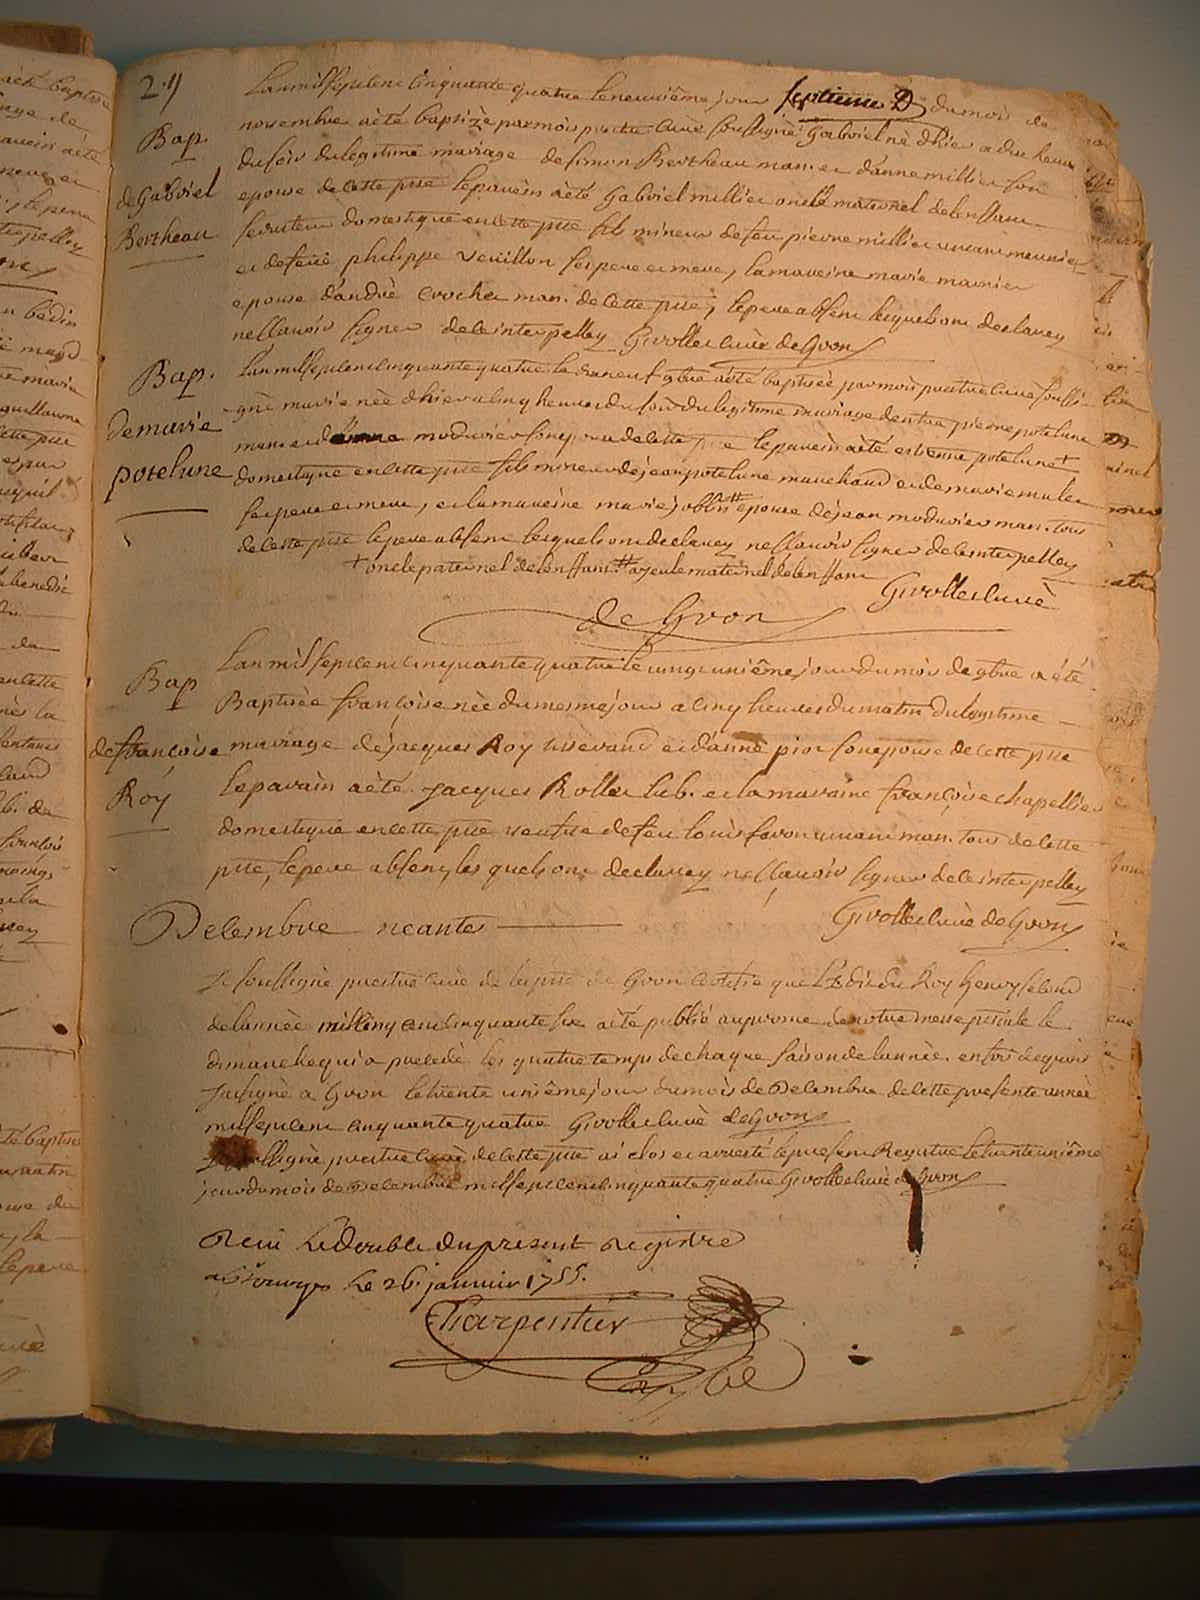 24
Bap.
de Gabriel
Bertheau
Lan mil sept cent cinquante quatre le neuvième jour septieme D du mois de
novembre a été baptizè par mois prestre curè soussignè Gabriel nè dhier a dix heure
du soir du legitime mariage de simon Bertheau man. et danne millier son
epouse de cette psse le parein a èté Gabriel millier oncle maternel de lenffant
serviteur domestique en cette psse fils mineur de feu pierre millier vivant meunier
et de feuë philippe veuillon ses pere et mere, la mareine marie marnier
epouse dandrè crochet man. de cette psse, le pere absent lesquels ont declarez
ne scavoir signer de ce interpellez Givollet curè de Gron
Bap.
de marie
potelune
Lan mil sept cent cinquante quatre le dix neuf 9bre a èté baptisée par mois prestre curè soussi-
gnè marie nèe dhier a cinq heures du soir du legitime mariage dentre pierre potelune
man. et danne moduvier son epouse de cette psse le parein a èté estienne potelune +
domestique en cette psse fils mineur de jean potelune marchand et de marie mulet
ses pere et mere, et la mareine marie joblin # epouse de jean moduvier man. tous
de cette psse le pere absent lesquels ont declarez ne scavoir signer de ce interpellez
+ oncle paternel de lenffant # ayeule maternel de lenffant Givollet curè
de Gron
Bap
de francoise
Roy
Lan mil sept cent cinquante quatre le vingt unième jour du mois de 9bre a été
Baptisée françoise nèe du mesme jour a cinq heures du matin du legitime
mariage de jacques Roy tisserand et danne pior son epouse de cette psse
le parain a èté Jacques Rollet lab. et la maraine françoise chapellier
domestique en cette psse veufve de feu louis favon vivant man. tous de cette
psse, le pere absent, les quels ont declarez ne scavoir signer de ce interpellez
Givollet curè de Gron
Decembre neante
Je soussignè prestre curè de la psse de Gron certifie que LEdit du Roy henry second
de lannèe mil cinq cent cinquante six a èté publié au prosne de notre messe psiale le
dimanche qui a precedè les quatre temps de chaque saison de lannèe. en foi de quoi
jai signè a Gron le trente unième jour du mois de Decembre de cette presente annèe
mil sept cent cinquante quatre Givollet curè de Gron
Je soussignè prestre curè de cette psse ai clos et arrestè le present Registre le trente unième
jour du mois de Decembre mil sept cent cinquante quatre Givollet curè de Gron
Receu Le double du present Registre
a Bourges Le 26. janvier 1755.
Charpentier